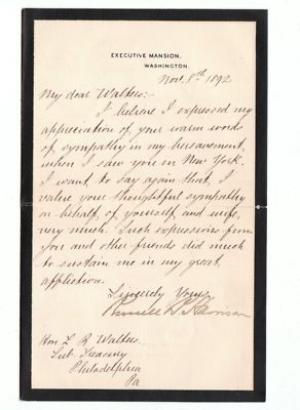 EXECUTIVE MANSION,
WASHINGTON.
Nov. 8th 1892
My dear Walker:-
I believe I expressed my
appreciation of your warm words
of sympathy in my bereavement,
when I saw you in New York.
I want to say again that, I
value your thoughtful sympathy
on behalf, of yourself, and wife,
very much. Such expressions from
you and other friends did much
to sustain me in my great
affliction.
Sincerely Yours,
Russell B. Harrison
Hon L R Walker
Sub. Treasury
Philadelphia
Pa